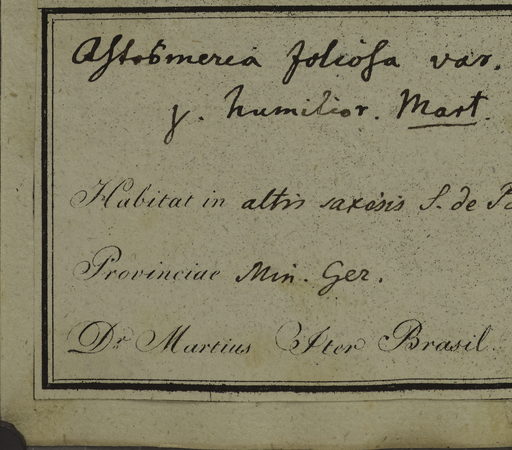 Alstromeria foliosa var.
γ. humilior. Mart.
Habitat in altis saxosis S. de
Provinciae Min. Ger.
Dr Martius Iter Brasil.